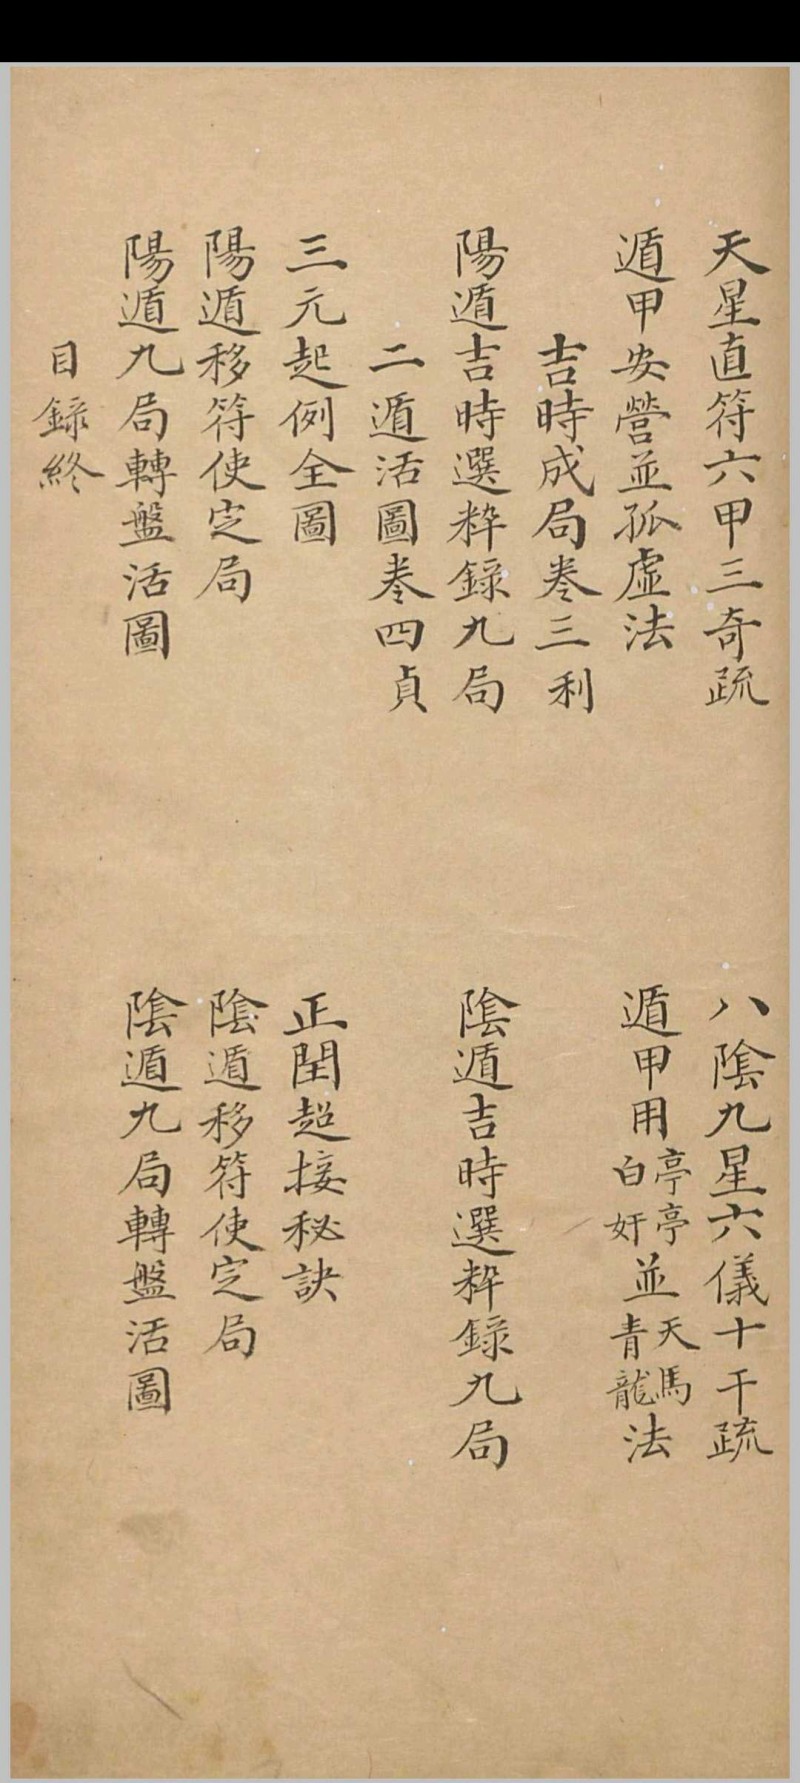 天星直符六甲三奇疏　八陰九星六儀十干疏
遁甲安營並孤虛法　遁甲用亭亭白奸並天馬青龍法
吉時成局卷三利
陽遁吉時選粹錄九局　陰遁吉時選粹錄九局
二遁活圖卷四貞
三元起例全圖　正閏超接秘訣
陽遁移符使定局　陰遁移符使定局
陽遁九局轉盤活圖　陰遁九局轉盤活圖
目錄終